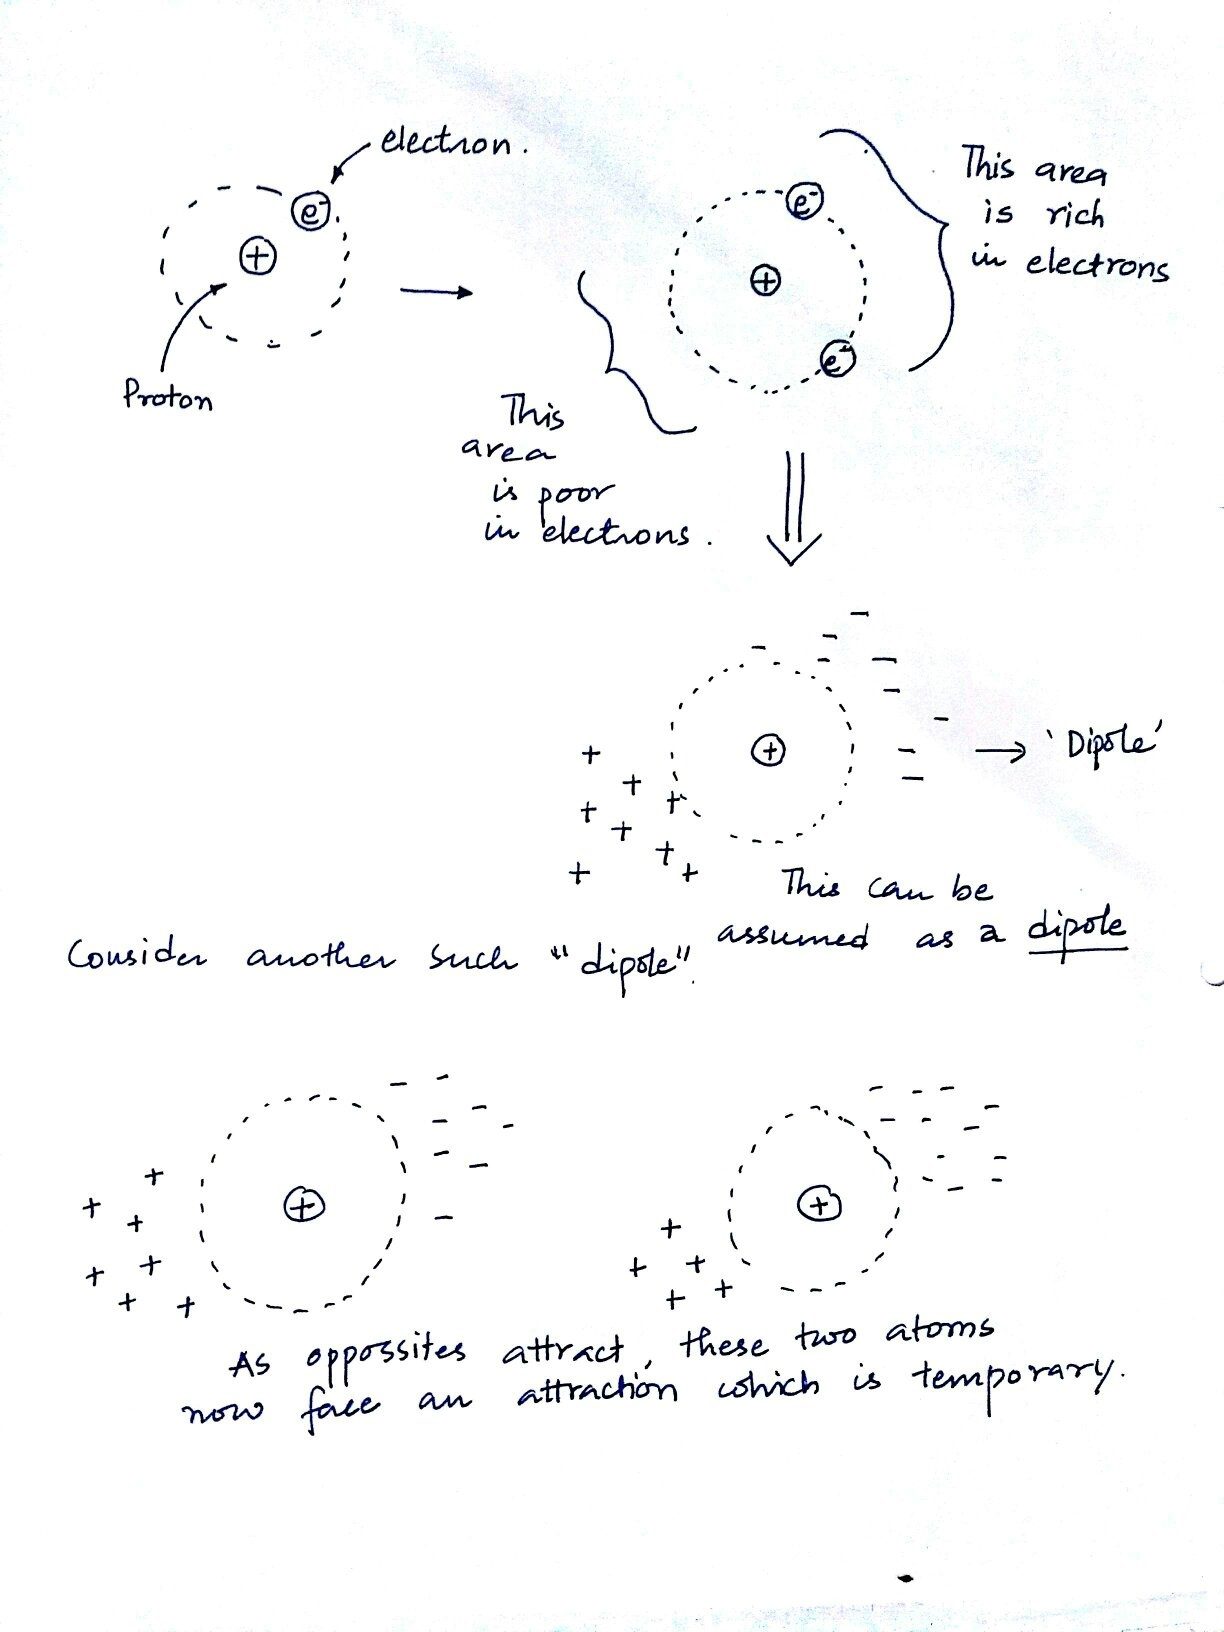 electron.
e⁻
+
Proton
e⁻
+
e⁻
This area
is rich
in electrons
This
area
is poor
in electrons.
+
'Dipole'
This can be
assumed as a dipole
Consider another such "dipole".
+
+
As oppossites attract, these two atoms
now face an attraction which is temporary.